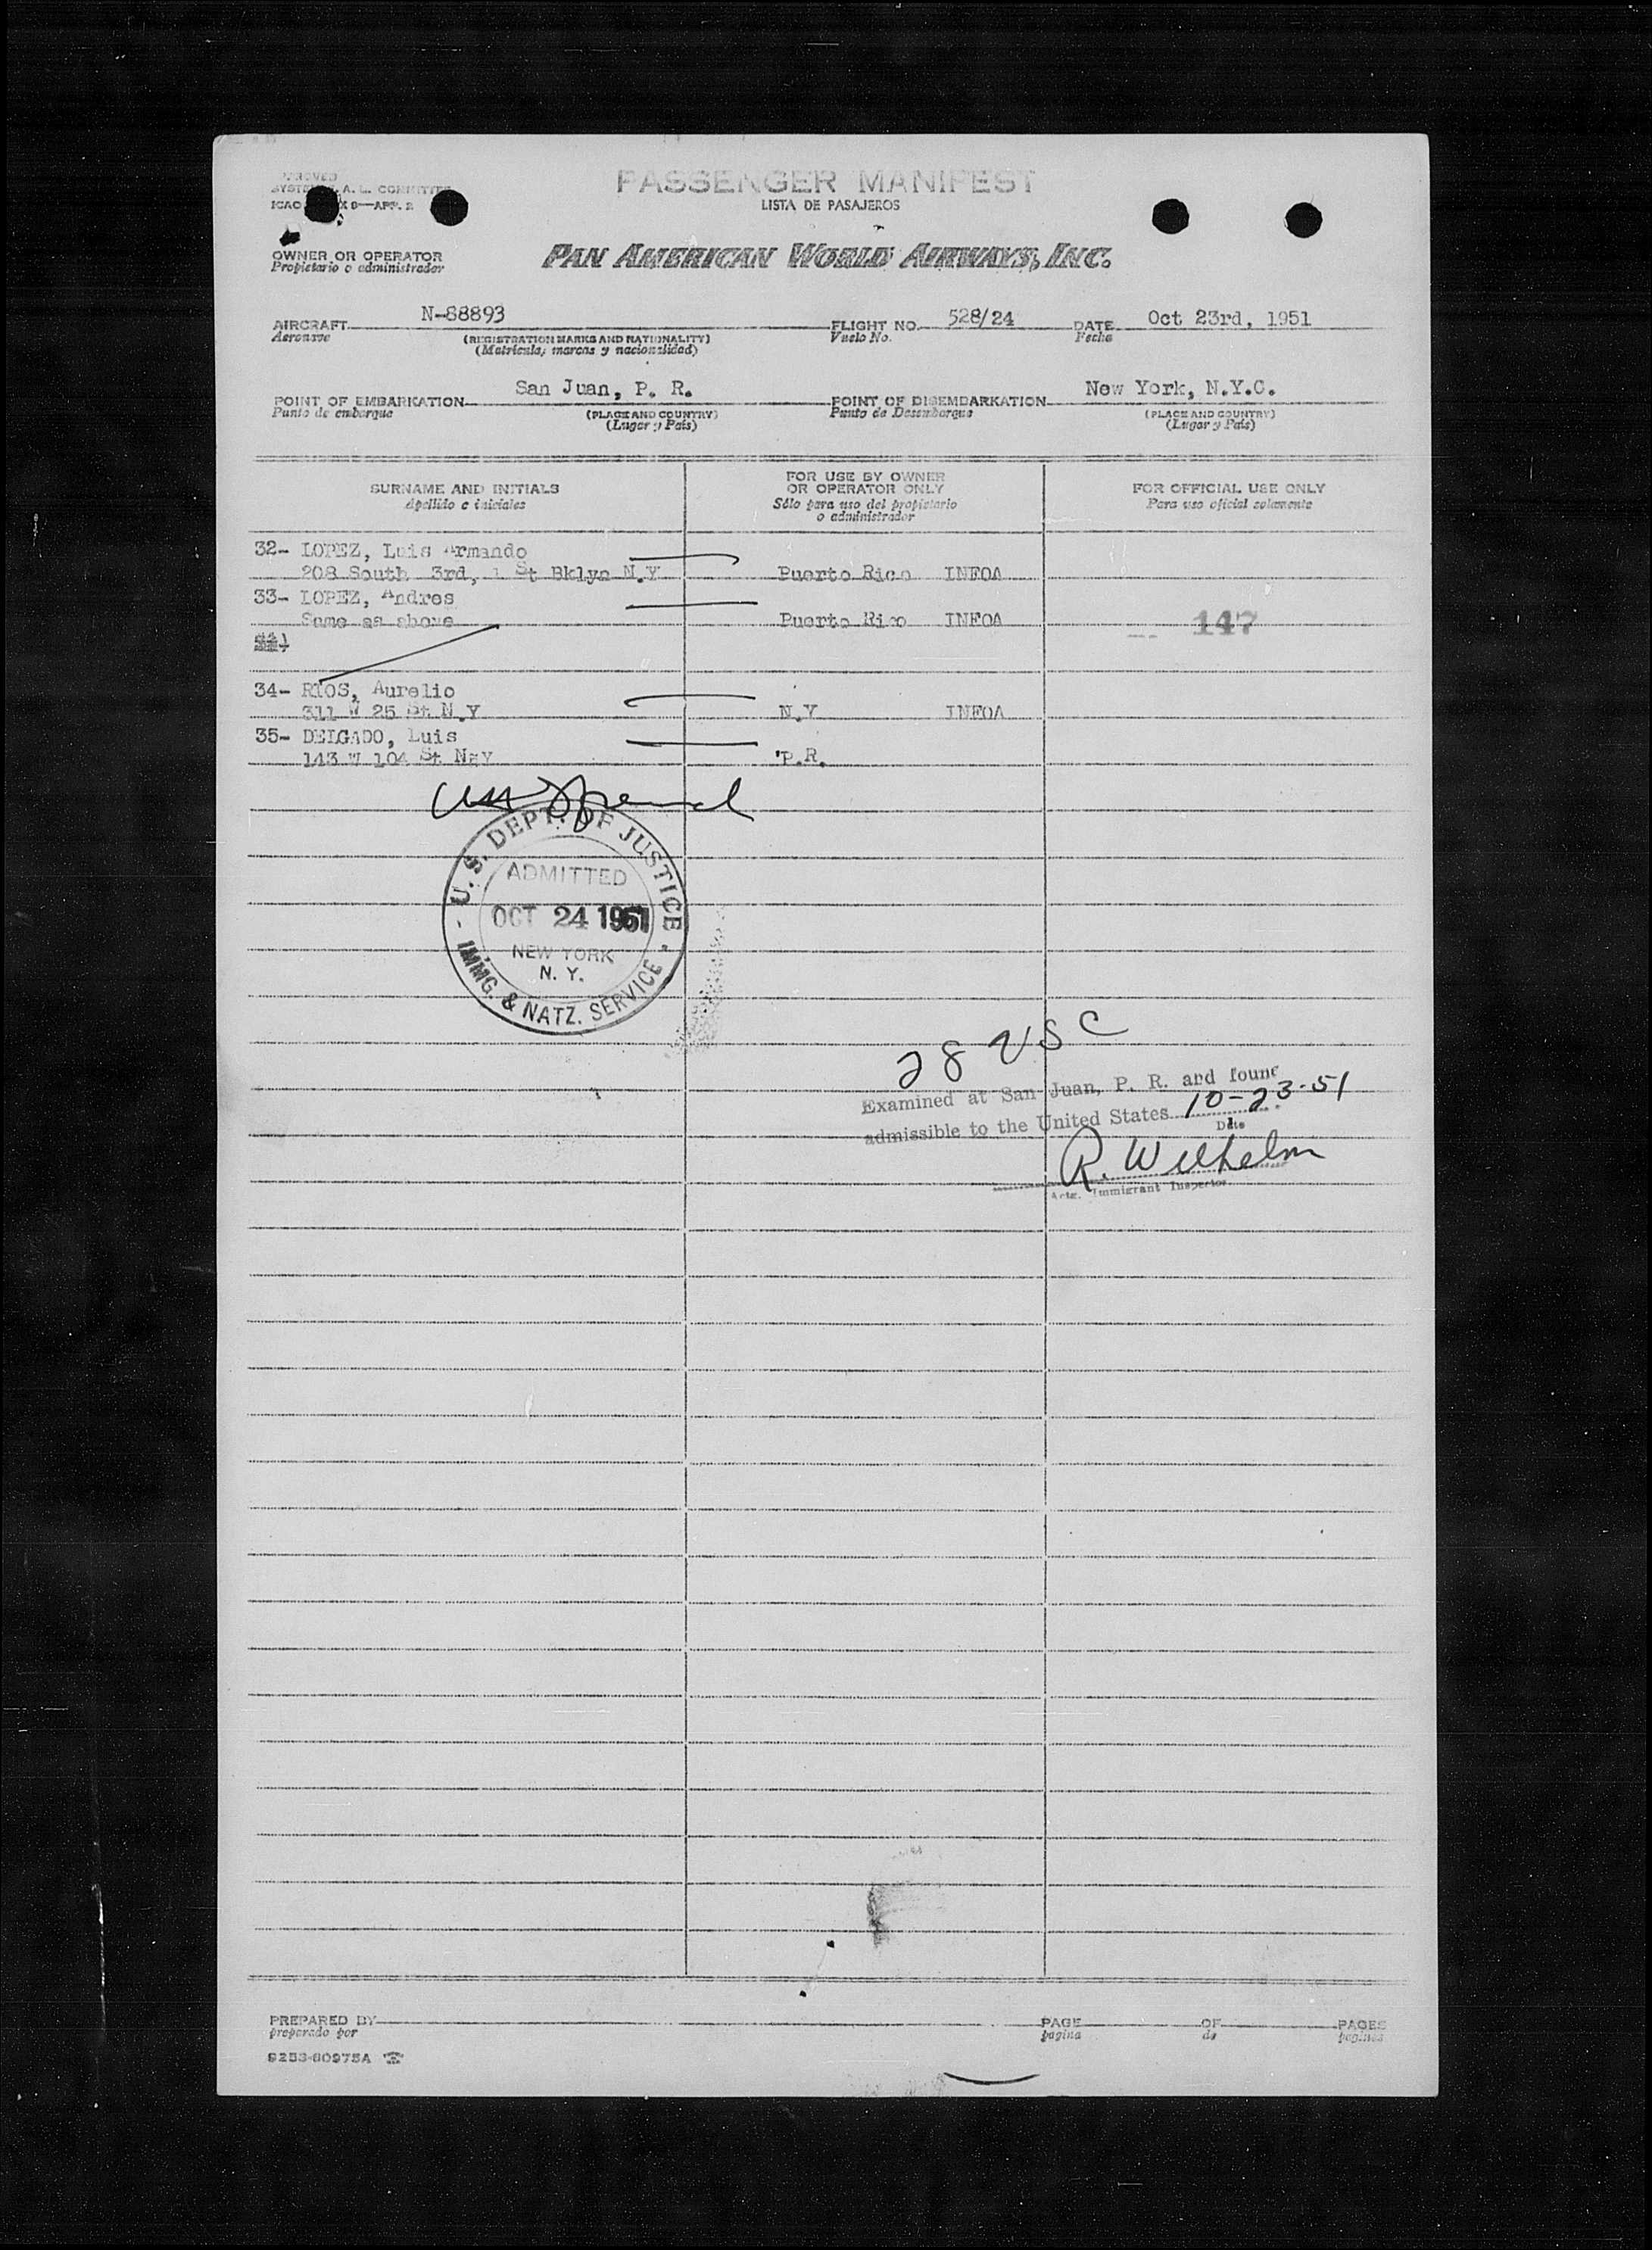 PASSENGER MANIFEST
LISTA DE PASAJEROS
APPROVED
A. L. COMMITTEE
ICAO X 9—APP. 2
OWNER OR OPERATOR
Propietario o administrador
PAN AMERICAN WORLD AIRWAYS, INC.
AIRCRAFT N-88893 FLIGHT NO. 528/24 DATE Oct 23rd, 1951
Aeronave (REGISTRATION MARKS AND NATIONALITY) Vuelo No. Fecha
(Matricula, marcas y nacionalidad)
POINT OF EMBARKATION San Juan, P. R. POINT OF DISEMBARKATION New York, N.Y.C.
Punto de embarque (PLACE AND COUNTRY) Punto de Desembarque (PLACE AND COUNTRY)
(Lugar y País) (Lugar y País)
SURNAME AND INITIALS
Apellido e iniciales
FOR USE BY OWNER
OR OPERATOR ONLY
Sólo para uso del propietario
o administrador
FOR OFFICIAL USE ONLY
Para uso oficial solamente
32- LOPEZ, Luis Armando
208 South 3rd, 1 St Bklyn N.Y Puerto Rico INFOA
33- LOPEZ, Andres
Same as above Puerto Rico INFOA 147
34- RIOS, Aurelio
311 W 25 St N.Y N.Y INFOA
35- DELGADO, Luis
143 W 104 St NªY 'P.R.
U. S. DEPT. OF JUSTICE
ADMITTED
OCT 24 1951
NEW YORK
N. Y.
IMMG. & NATZ. SERVICE
28 USC
Examined at San Juan, P. R. and found
admissible to the United States 10-23-51
Date
R. Wilhelm
Actg. Immigrant Inspector
PREPARED BY PAGE OF PAGES
preparado por pagina de paginas
9253-80975A